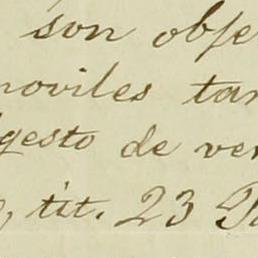 son obje
moviles tan
Digesto de ver
tit. 23 Pa